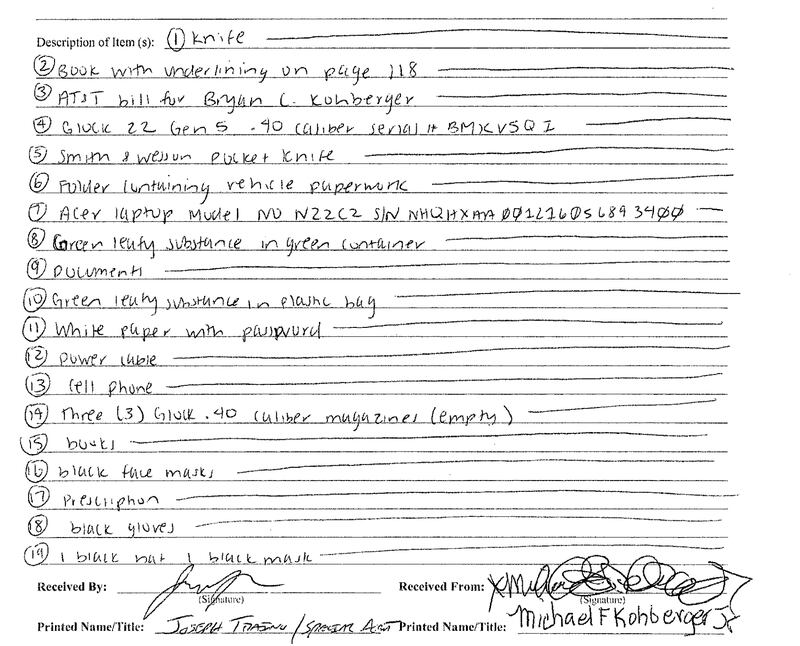 Description of Item (s): ① Knife
② Book with underlining on page 118
③ AT&T bill for Bryan C. Kohberger
④ Glock 22 Gen 5 .40 caliber serial # BMXV5QI
⑤ Smith & Wesson pocket knife
⑥ Folder containing vehicle paperwork
⑦ Acer laptop Model NO N22C2 S/N
⑧ Green leafy substance in green container
⑨ Documents
⑩ Green leafy substance in plastic bag
⑪ White paper with password
⑫ power cable
⑬ cell phone
⑭ Three (3) Glock .40 caliber magazines (empty)
⑮ books
⑯ black face masks
⑰ Prescription
⑱ black gloves
⑲ 1 black hat 1 black mask
Received By: Received From: X
(Signature) (Signature)
Printed Name/Title: Joseph / Special Agent Printed Name/Title: Michael F Kohberger Jr